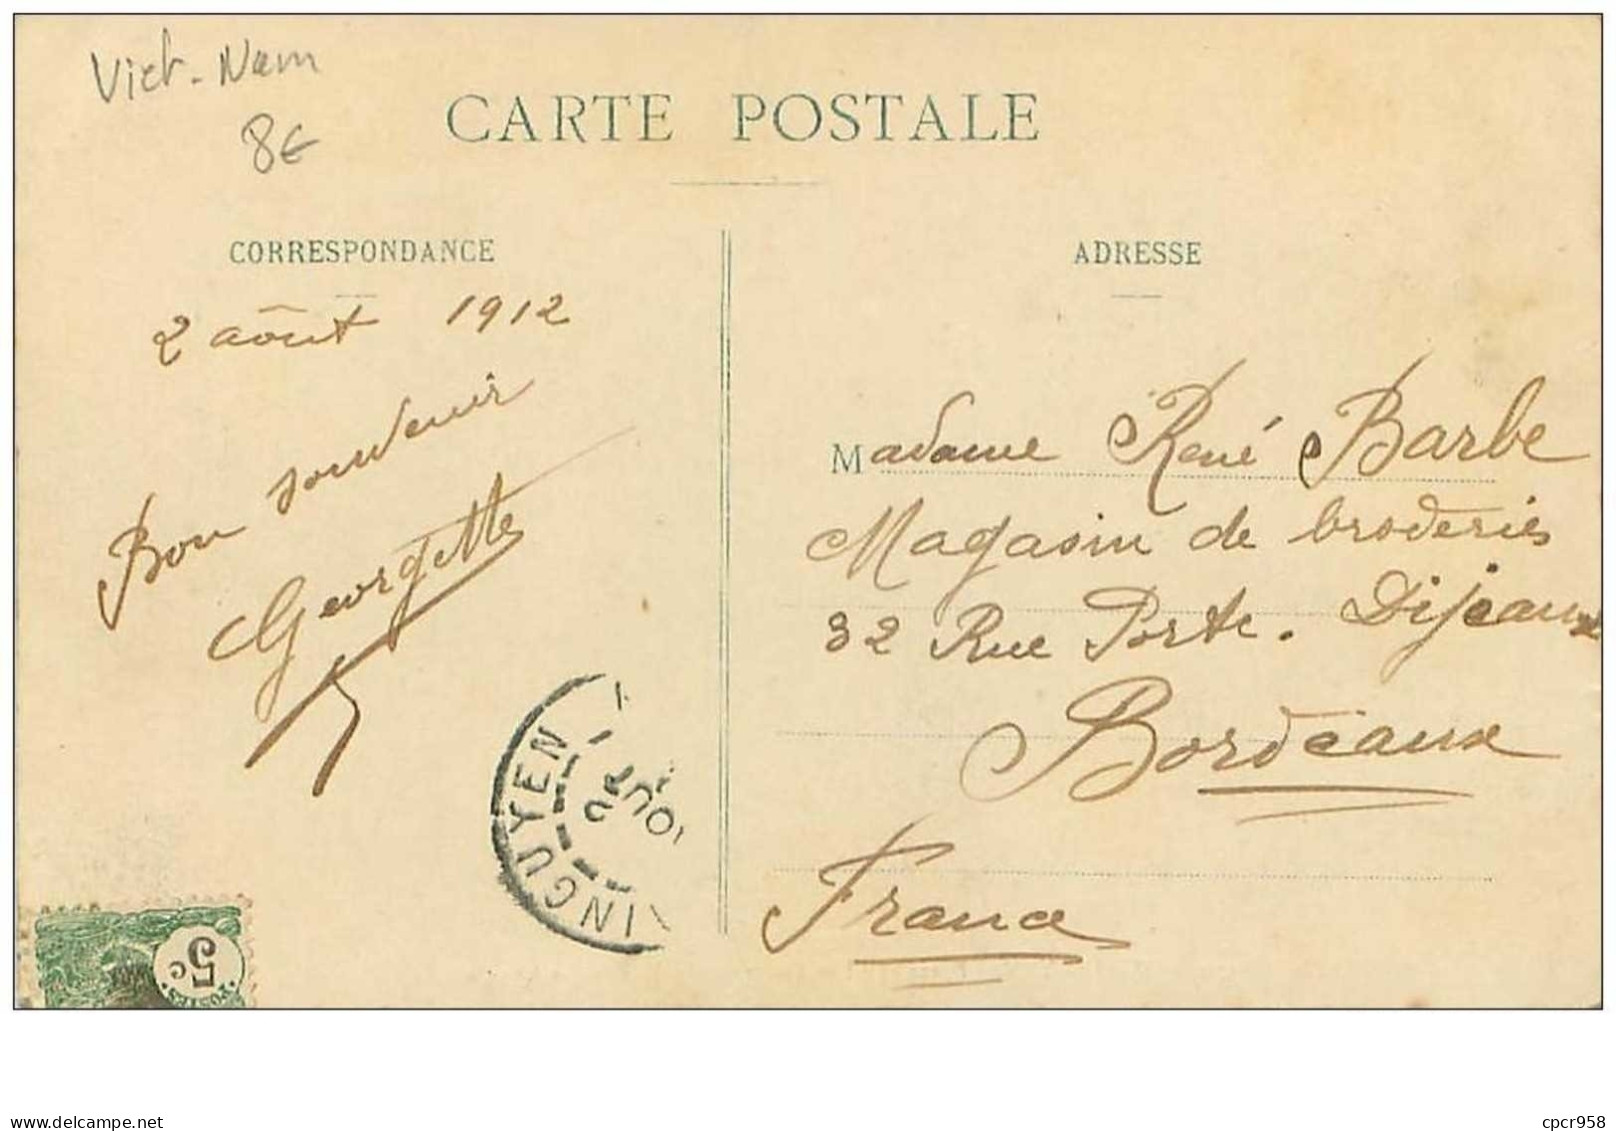 Viet-Nam
8€
CARTE POSTALE
CORRESPONDANCE
2 aôut 1912
Bon souvenir
Georgette
ADRESSE
Madame René Barbe
Magasin de broderies
32 Rue Porte. Dijeaux
Bordeaux
France
INGUYEN
AOUT
5c
POSTES
cpcr958